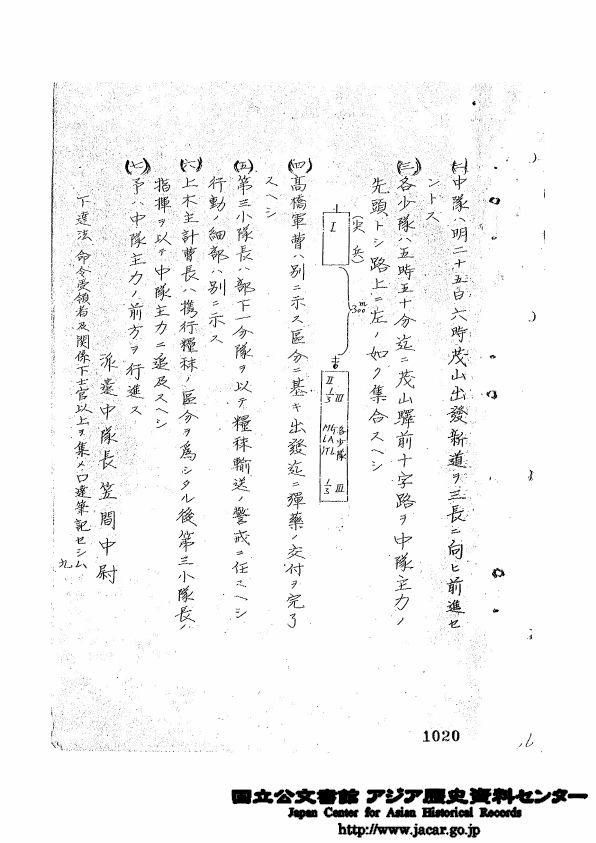 (二)中隊ハ明二十五日六時茂山出發新道ヲ三長ニ向ヒ前進セ
ントス
(三)各少隊ハ五時五十分迄ニ茂山驛前十字路ヲ中隊主力ノ
先頭トシ路上ニ左ノ如ク集合スヘシ
(尖兵)
I
300m
II
1/3 III
各少隊
MG
LA
iTL
1/3 III
(四)高橋軍曹ハ別ニ示ス區分ニ基キ出發迄ニ彈藥ノ交付ヲ完了
スヘシ
(五)第三小隊長ハ部下一分隊ヲ以テ糧秣輸送ノ警戒ニ任スヘシ
行動ノ細部ハ別ニ示ス
(六)上木主計曹長ハ携行糧秣ノ區分ヲ爲シタル後第三小隊長ノ
指揮ヲ以テ中隊主力ニ追及スヘシ
(七)予ハ中隊主力ノ前方ヲ行進ス
派遣中隊長笠間中尉
下達法 命令受領者及関係下士官以上ヲ集メ口達筆記セシム
九
1020
国立公文書館 アジア歴史資料センター
Japan Center for Asian Historical Records
http://www.jacar.go.jp